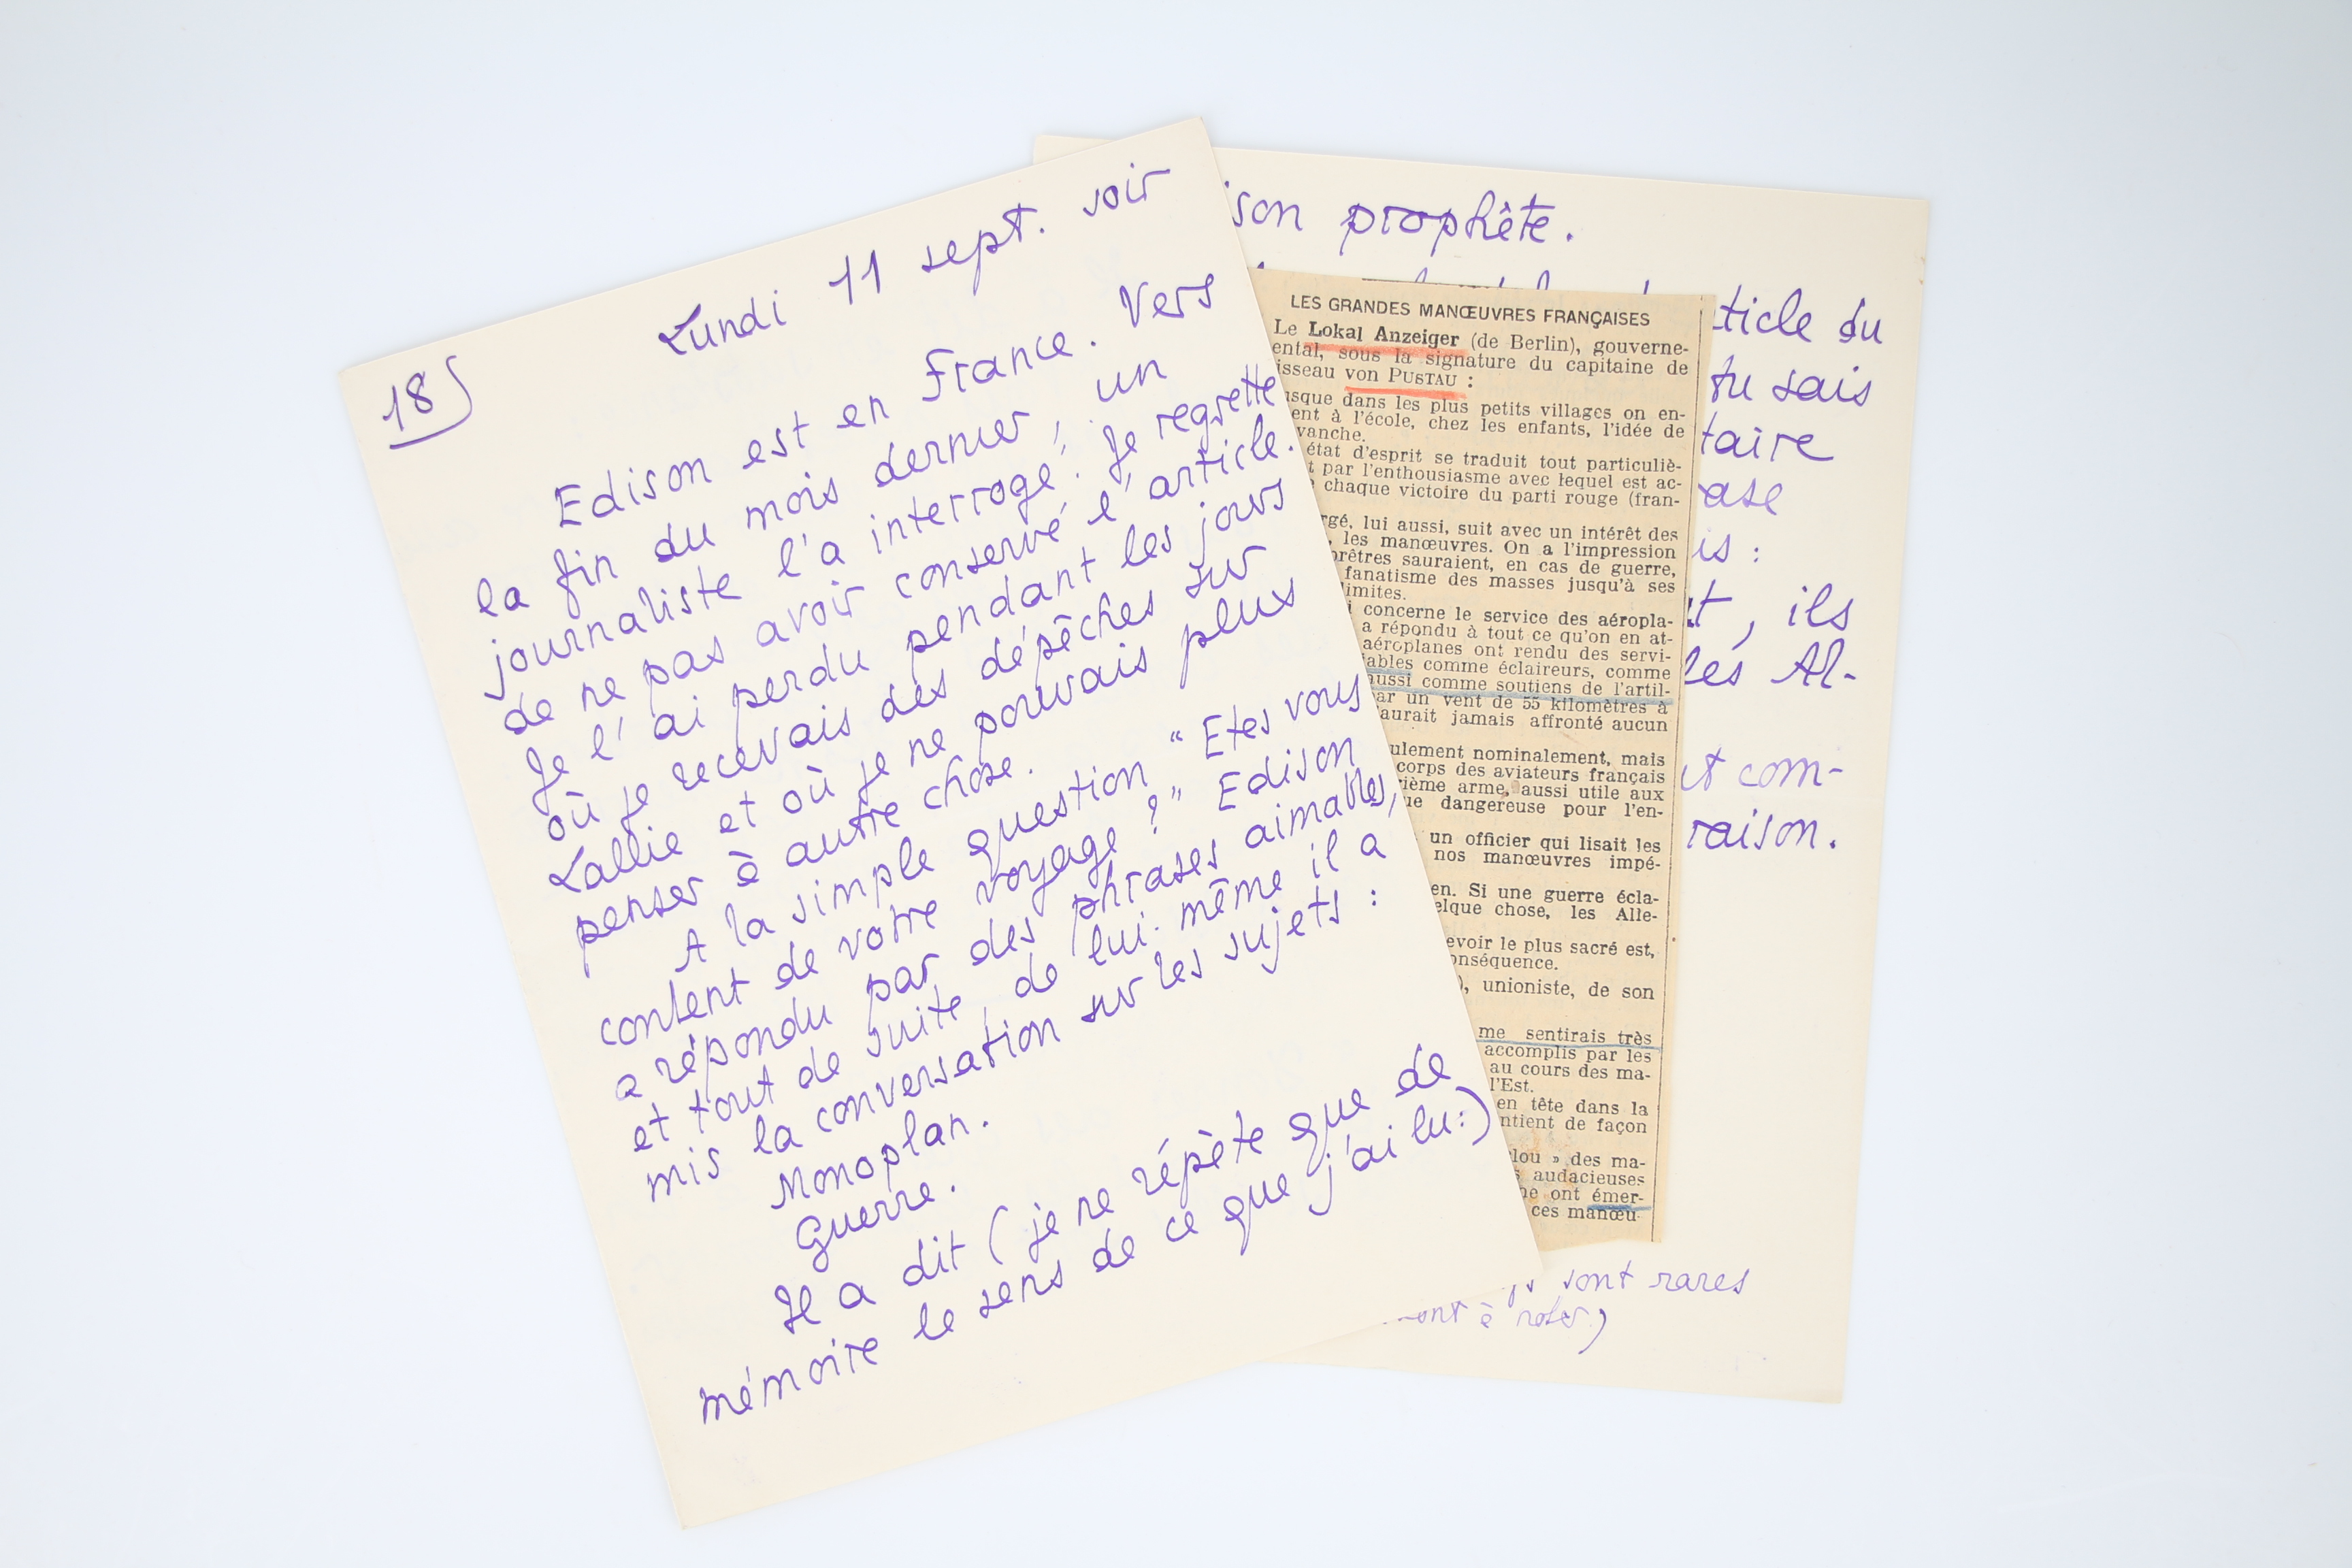 18
Lundi 11 sept. soir
Edison est en France. Vers
la fin du mois dernier, un
journaliste l'a interrogé. Je regrette
de ne pas avoir conservé l'article.
Je l'ai perdu pendant les jours
où je recevais des dépêches sur
Lallie et où je ne pouvais plus
penser à autre chose.
A la simple question "Etes vous
content de votre voyage ?" Edison
a répondu par des phrases aimables,
et tout de suite, de lui-même il a
mis la conversation sur les sujets :
Monoplan.
Guerre.
Il a dit (je ne répète que de
mémoire le sens de ce que j'ai lu:)
ison prophète.
ticle du
tu sais
taire
ase
is :
t, ils
les Al-
t com-
raison.
sont rares
ont à noter)
LES GRANDES MANŒUVRES FRANÇAISES
Le Lokal Anzeiger (de Berlin), gouverne-
ental, sous la signature du capitaine de
isseau von PUSTAU :
usque dans les plus petits villages on en-
ent à l'école, chez les enfants, l'idée de
vanche.
état d'esprit se traduit tout particuliè-
t par l'enthousiasme avec lequel est ac-
e chaque victoire du parti rouge (fran-
rgé, lui aussi, suit avec un intérêt des
, les manœuvres. On a l'impression
prêtres sauraient, en cas de guerre,
fanatisme des masses jusqu'à ses
limites.
i concerne le service des aéropla-
a répondu à tout ce qu'on en at-
aéroplanes ont rendu des servi-
iables comme éclaireurs, comme
aussi comme soutiens de l'artil-
ar un vent de 55 kilomètres à
aurait jamais affronté aucun
ulement nominalement, mais
corps des aviateurs français
rième arme, aussi utile aux
ue dangereuse pour l'en-
un officier qui lisait les
nos manœuvres impé-
en. Si une guerre écla-
elque chose, les Alle-
evoir le plus sacré est,
onséquence.
), unioniste, de son
me sentirais très
accomplis par les
au cours des ma-
l'Est.
en tête dans la
ntient de façon
lou » des ma-
s audacieuses
he ont émer-
ces manœu-